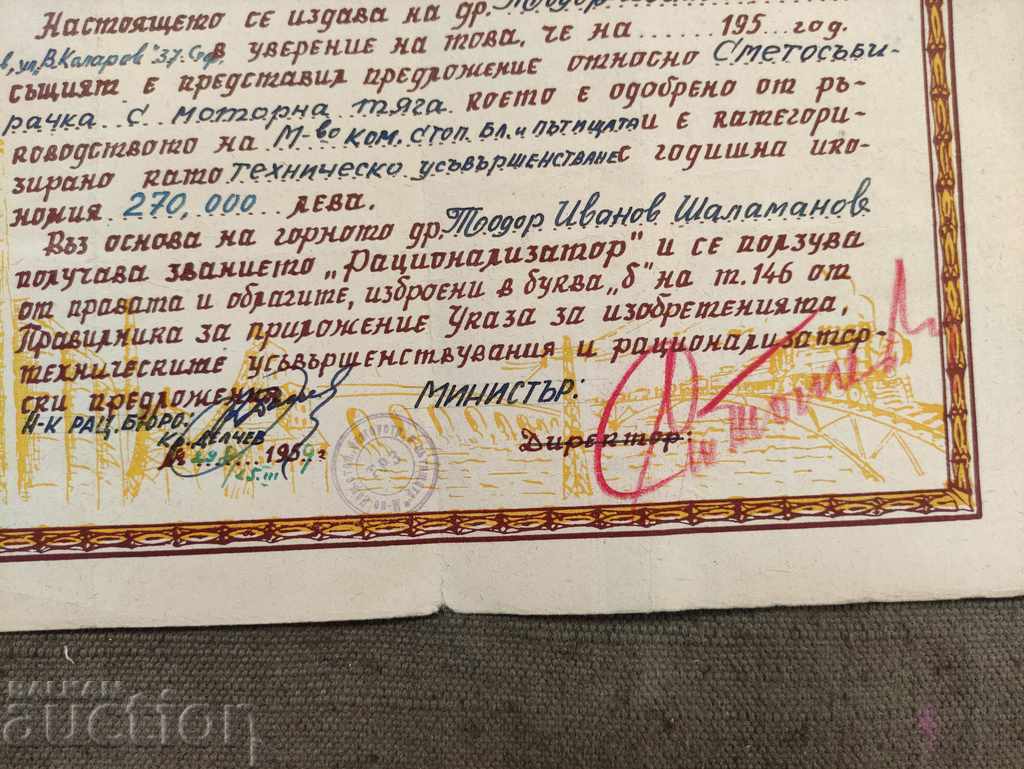 Настоящето се издава на др. Тодор
ул. В. Коларов" 37. Соф. в уверение на това, че на ...... 195... год.
същият е представил предложение относно Сметосъби-
рачка с моторна тяга което е одобрено от ръ-
ководството на М-во ком. стоп. бл. и пътищата и е категори-
зирано като техническо усъвършенстване с годишна ико-
номия 270,000 лева.
Въз основа на горното др. Тодор Иванов Шаламанов
получава званието „Рационализатор" и се ползува
от правата и облагите, изброени в буква „б" на т. 146 от
Правилника за приложение Указа за изобретенията,
техническите усъвършенствувания и рационализатор-
ски предложения
Н-к рац. бюро:
Кр. Делчев
МИНИСТЪР:
Директор:
195 г
BALKAN
auction